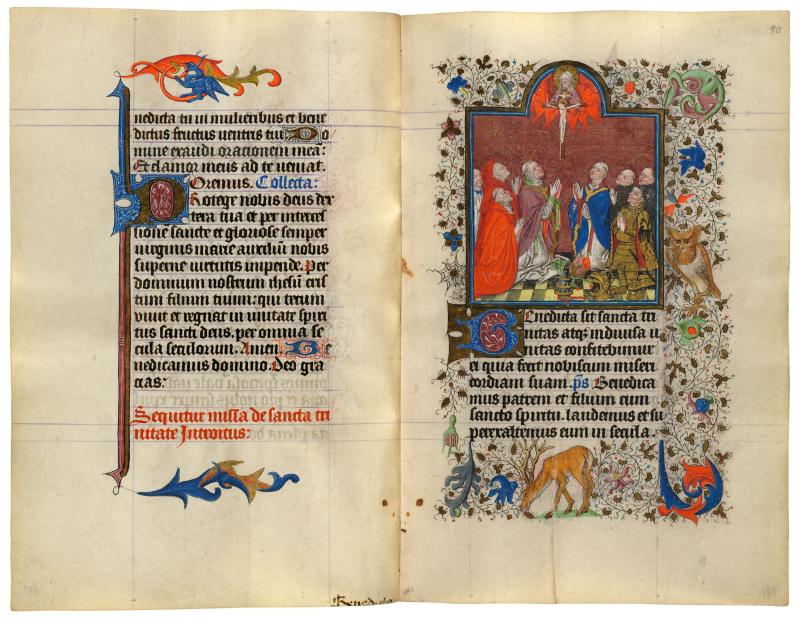 nedicta tu in mulieribus et bene
dictus fructus ventris tui. Do
mine exaudi orationem meā:
Et clamor meus ad te veniat.
Oremus. Collecta:
Protege nobis deus dex
tera tua et per interces
sione sancte et gloriose semper
virginis marie auxiliū nobis
superne virtutis impende. Per
dominum nostrum ihesū cris
tum filium tuum: qui tecum
vivit et regnat in unitate spiri
tus sancti deus. per omnia se
cula seculorum. Amen. Be
nedicamus domino. Deo gra
cias:
Sequitur missa de sancta tri
nitate Introitus:
90
Benedicta sit sancta tri
nitas atqꝫ indivisa u
nitas confitebimur
ei quia fecit nobiscum miseri
cordiam suam. p̄s Benedica
mus patrem et filium cum
sancto spiritu. laudemus et su
perexaltemus eum in secula.
Benedicta